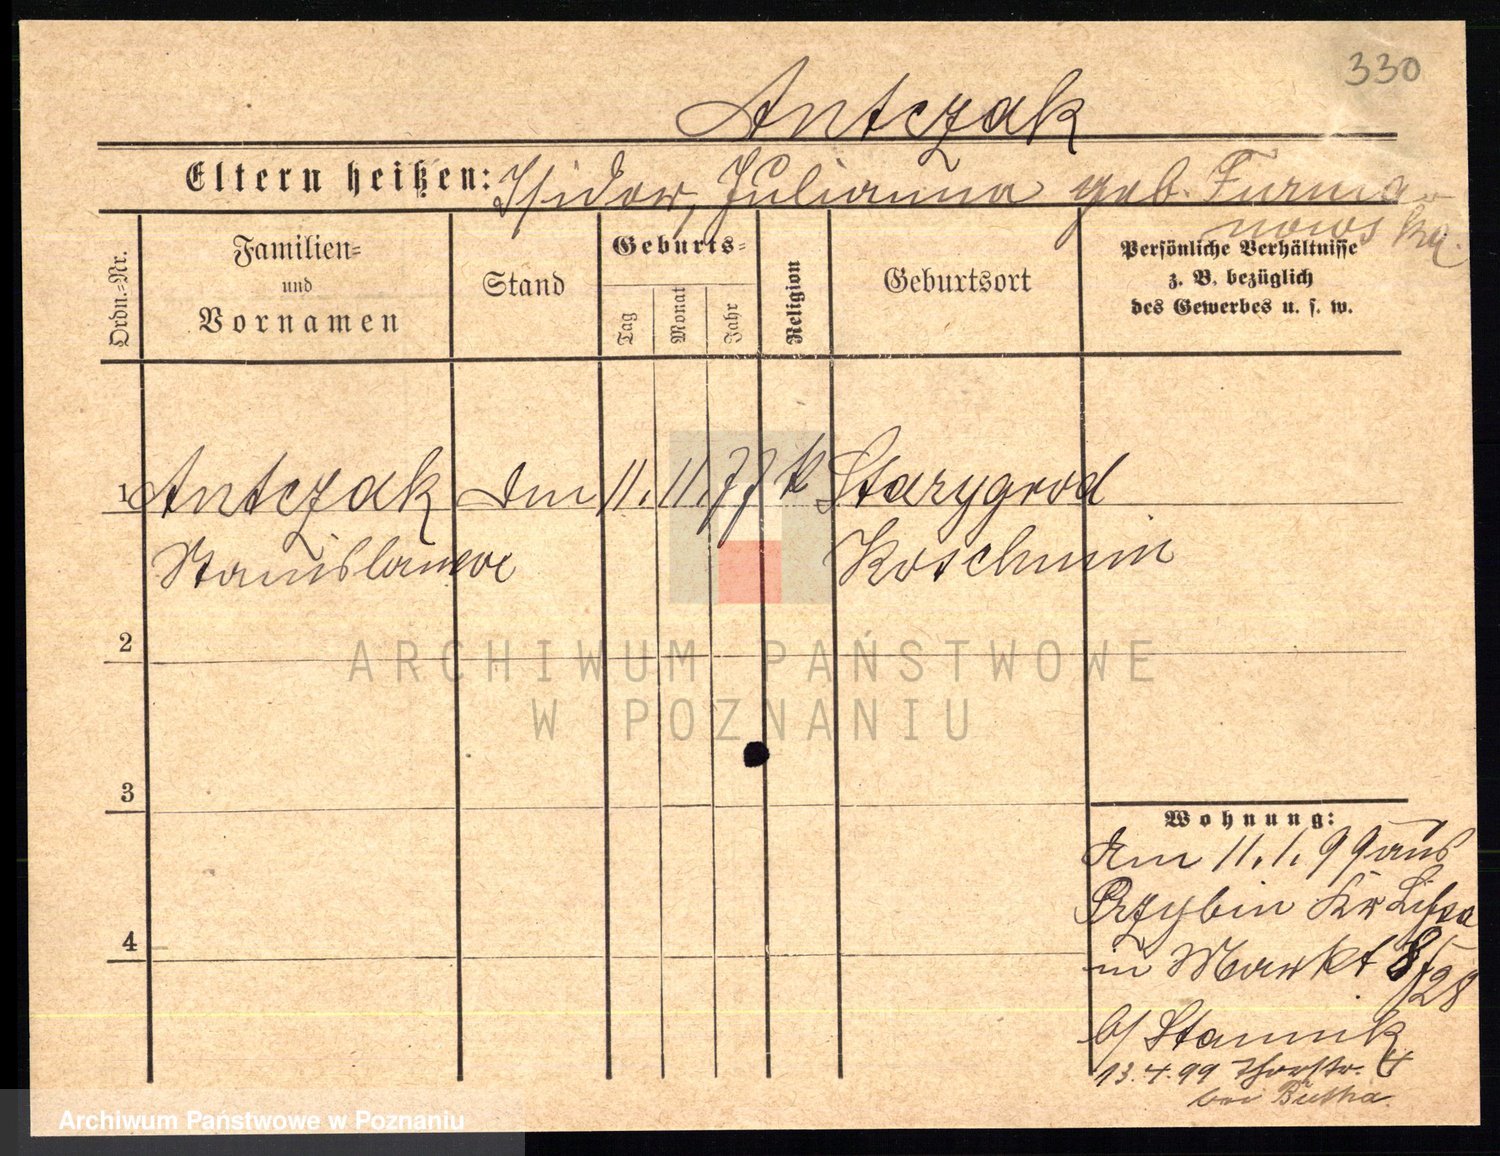 330
Antczak
Eltern heißen: Isidor, Julianna geb. Furma-
nowska.
Ordn.-Nr.
Familien-
und
Vornamen
Stand
Geburts-
Tag
Monat
Jahr
Religion
Geburtsort
Persönliche Verhältnisse
z. B. bezüglich
des Gewerbes u. s. w.
1 Antczak 11. 11. 77 k Starygrod
Stanislawa Koschmin
2
ARCHIWUM PAŃSTWOWE
W POZNANIU
3
Wohnung:
11. 1. 99 aus
Przybin Kr Lissa
in Markt 8/28
b/ Stannik
13. 4. 99 Thorstr. 4
bei Butha.
4
Archiwum Państwowe w Poznaniu